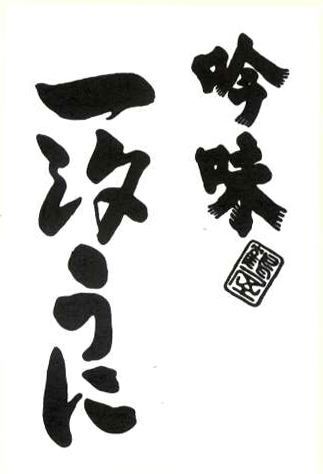 吟味
一汐うに